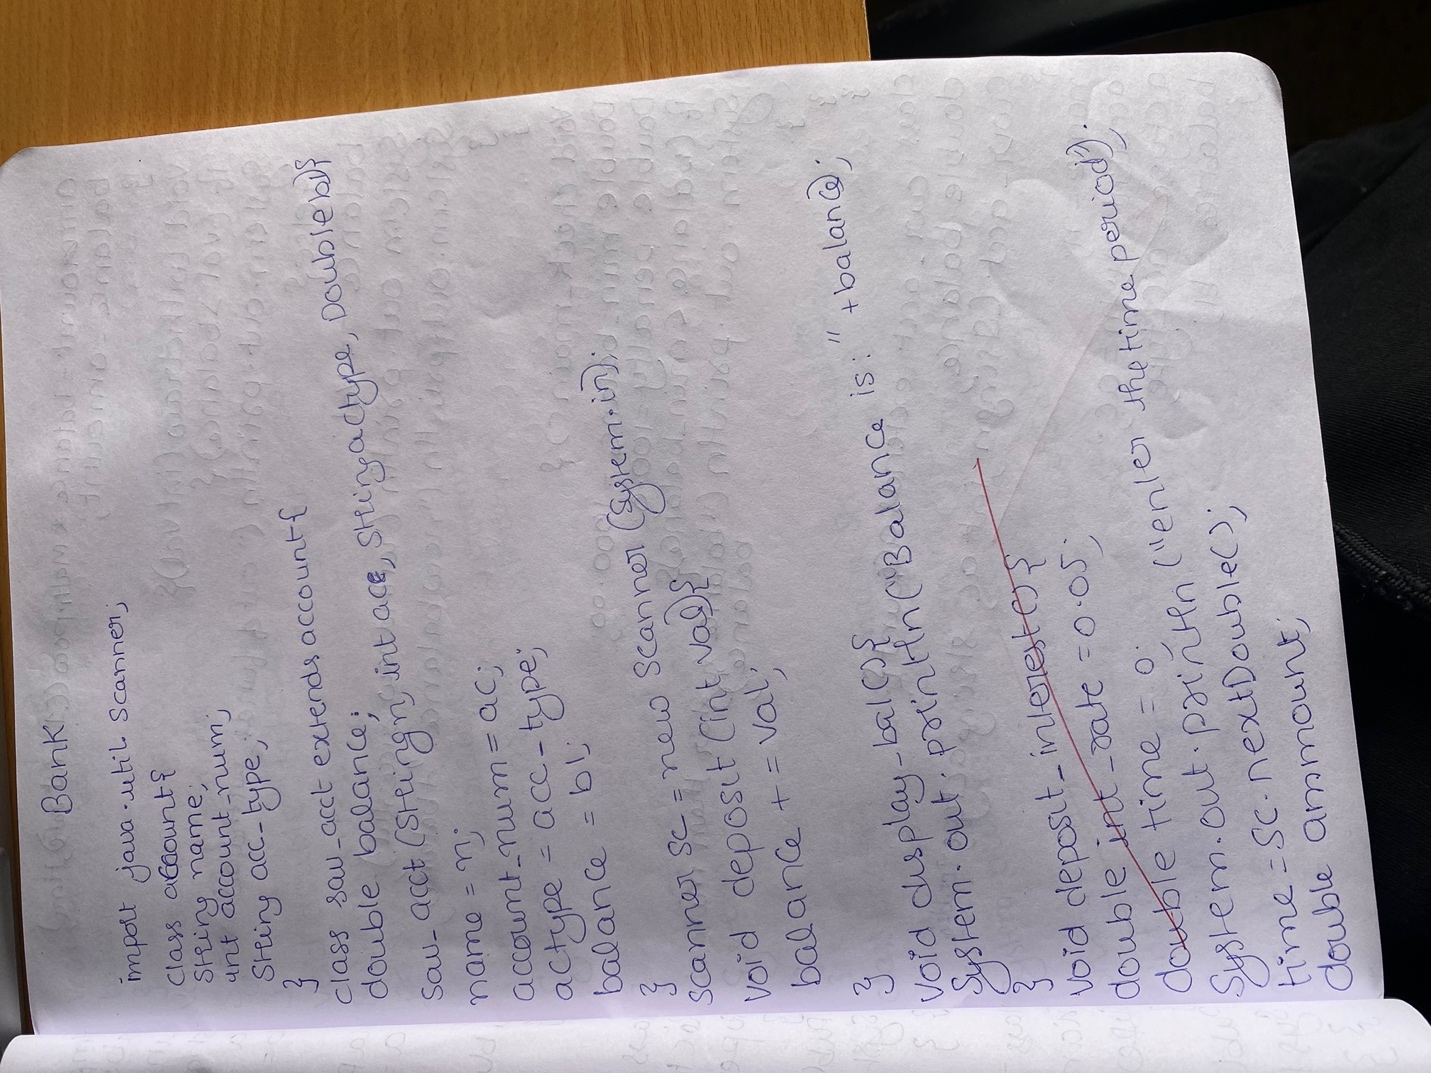 Bank
import java.util.Scanner;
class account{
String name;
int account_num;
String acc_type;
}
class sav_acct extends account{
double balance;
sav_acct (String n, int acc, String actype, Double bl){
name = n;
account_num = ac;
actype = acc_type;
balance = bl;
}
Scanner sc = new Scanner (System.in);
void deposit (int val){
balance += val;
}
void display_bal(){
System.out.println("Balance is:" +balance);
}
void depost_interest(){
double int_rate = 0.05;
double time = 0;
System.out.println ("enter the time period");
time = sc.nextDouble();
double ammount;